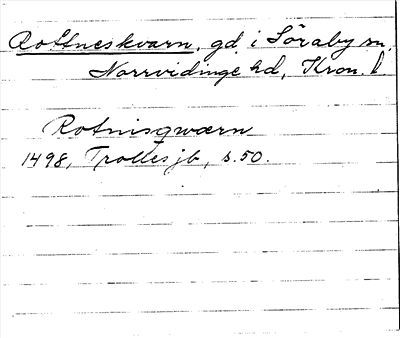 Rottneskvarn, gd i Söraby sn,
Norrvidinge hd, Kron. l.
Rotnisqwærn
1498, Trolles jb, s. 50.